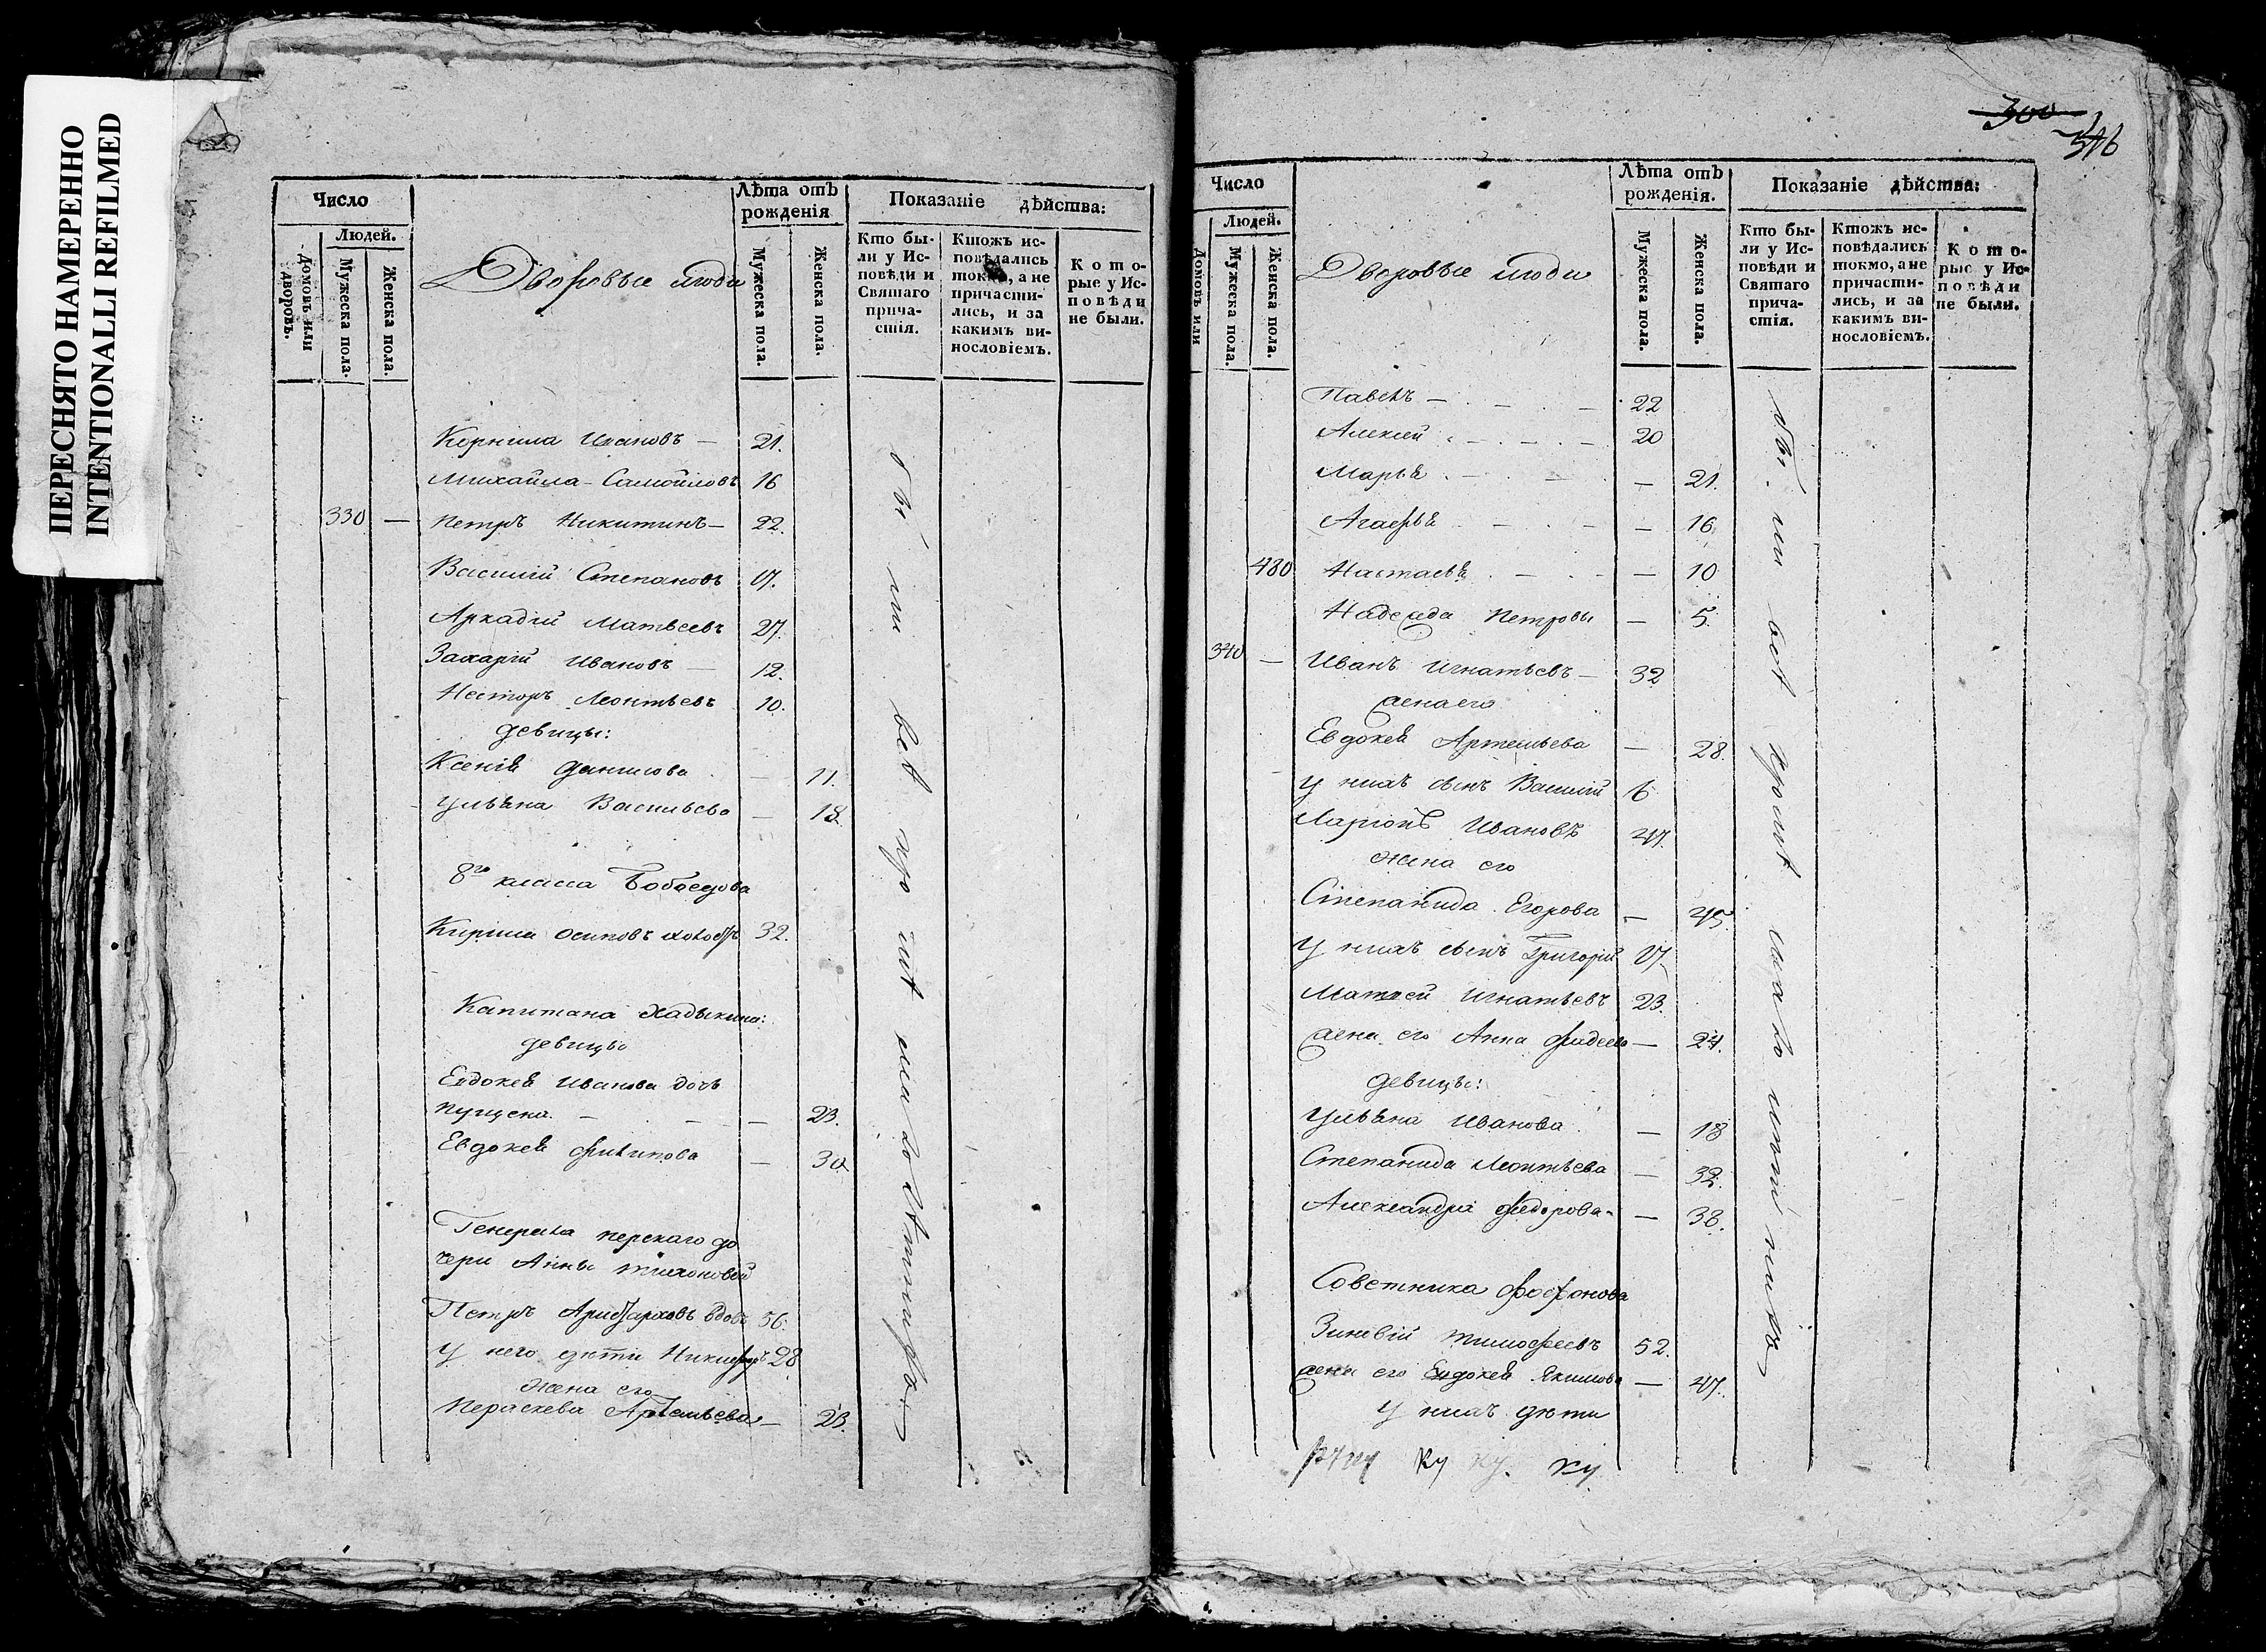 ПЕРЕСНЯТО НАМЕРЕННО
INTENTIONALLI REFILMED
Число
Людей.
Домовъ или дворовъ.
Мужеска пола.
Женска пола.
Дворовые люди
Лѣта отъ рожденія
Мужеска пола.
Женска пола.
Показаніе дѣйства:
Кто бы-
ли у Ис-
повѣди и
Святаго
прича-
стія.
Ктожъ ис-
повѣдались
токмо, а не
причасти-
лись, и за
какимъ ви-
нословіемъ.
Кото-
рые у Ис-
повѣди
не были.
Корнила Ивановъ — 21.
Михайла Самойловъ 16
330 — Петръ Никитинъ — 22.
Василій Степановъ 17.
Аркадій Матвеевъ 27.
Захарій Ивановъ — 12.
Несторъ Леонтьевъ 10.
девицы:
Ксенія Данилова — 11.
Ульяна Васильева — 18.
8го класса Бобоедова
Кирила Осиповъ холостъ 32.
Капитана Жадыкина:
девицы
Евдокея Иванова дочь
— 23.
Евдокея Филипова — 30.
Генерала перскаго до
чери Анны Тихоновой
Петръ Аристарховъ вдовъ 56.
У него дети Никифоръ 28
жена его
Пераскева Артемьева — 23.
300
316
Число
Людей.
Домовъ или
Мужеска пола.
Женска пола.
Дворовые люди
Лѣта отъ рожденія.
Мужеска пола.
Женска пола.
Показаніе дѣйства:
Кто бы-
ли у Ис-
повѣди и
Святаго
прича-
стія.
Ктожъ ис-
повѣдались
токмо, а не
причасти-
лись, и за
какимъ ви-
нословіемъ.
Кото-
рые у Ис-
повѣди
не были.
Павелъ — 22
Алексей — 20
Марья — 21.
Агафья — 16
480 Настасья — 10
Надежда Петровы — 5.
340 — Иванъ Игнатьевъ — 32
жена его
Евдокея Артемьева — 28.
У нихъ сынъ Василій 6
Ларіонъ Ивановъ 47.
жена его
Степанида Егорова — 45.
У нихъ сынъ Григорій 17.
Матвей Игнатьевъ 23.
жена его Анна Фадеева — 24.
девицы:
Ульяна Иванова — 18
Степанида Леонтьева — 32.
Александра Федорова — 38.
Советника Фофонова
Зиновій Тимофеевъ 52.
жена его Евдокея Якимова — 47.
У нихъ дети
ку ку. ку